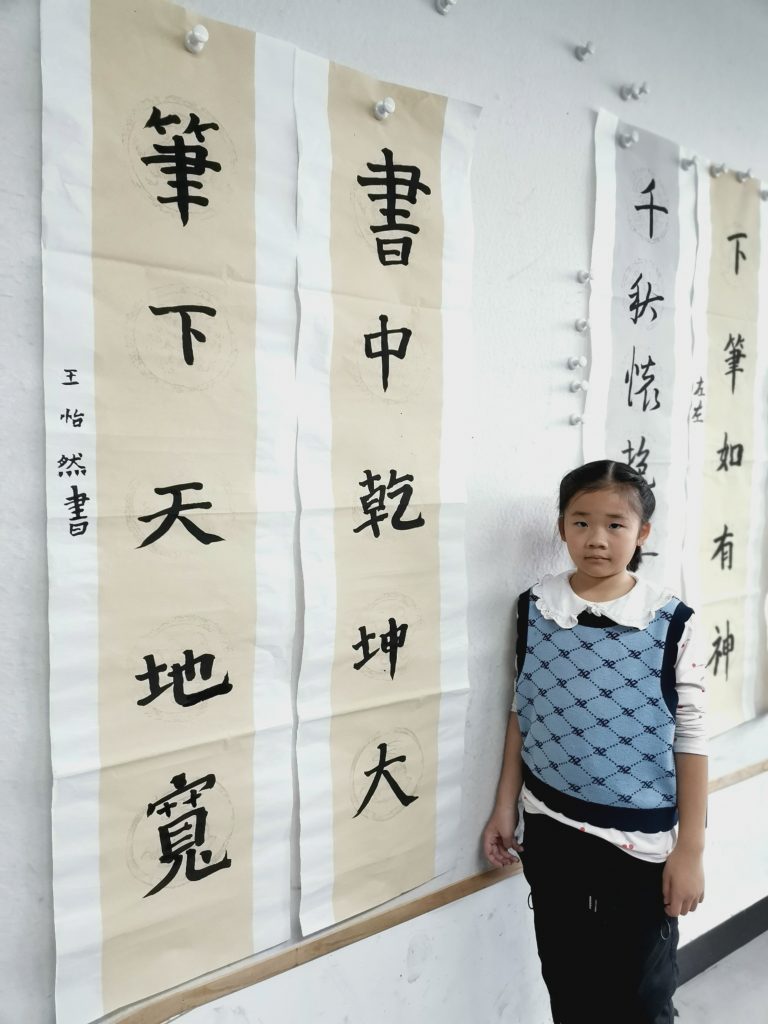 下筆如有神
千秋懷抱
書中乾坤大
筆下天地寬
王怡然書